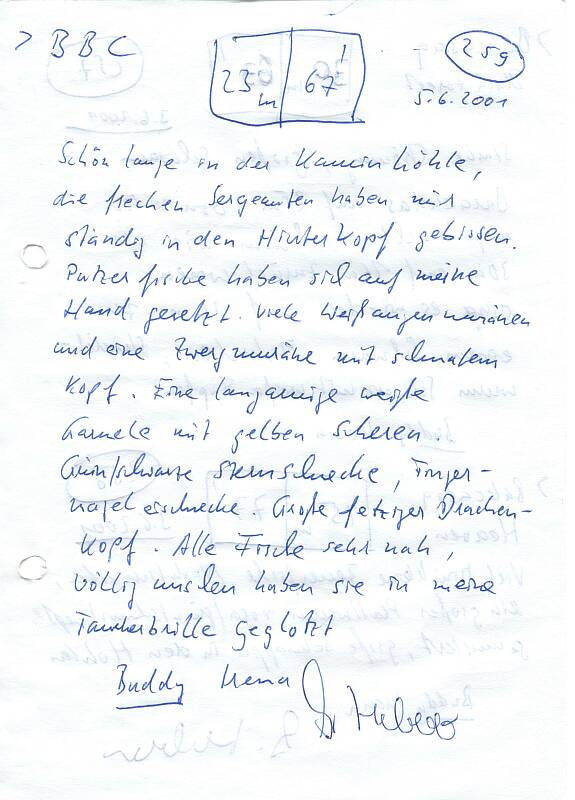 > BBC
23m 67'
259
5.6.2001
Schön lange in der Kaminhöhle,
die frechen Sergeanten haben mir
ständig in den Hinterkopf gebissen.
Putzerfische haben sich auf meine
Hand gesetzt. Viele Weißaugenmuränen
und eine Zwergmuräne mit schmalem
Kopf. Eine langarmige weiße
Garnele mit gelben Scheren.
Grün/schwarze Sternschnecke, Finger-
nagelschnecke Große fetziger Drachen-
kopf. Alle Fische sehr nah,
völlig haben sie in meine
Taucherbrille geglotzt
Buddy